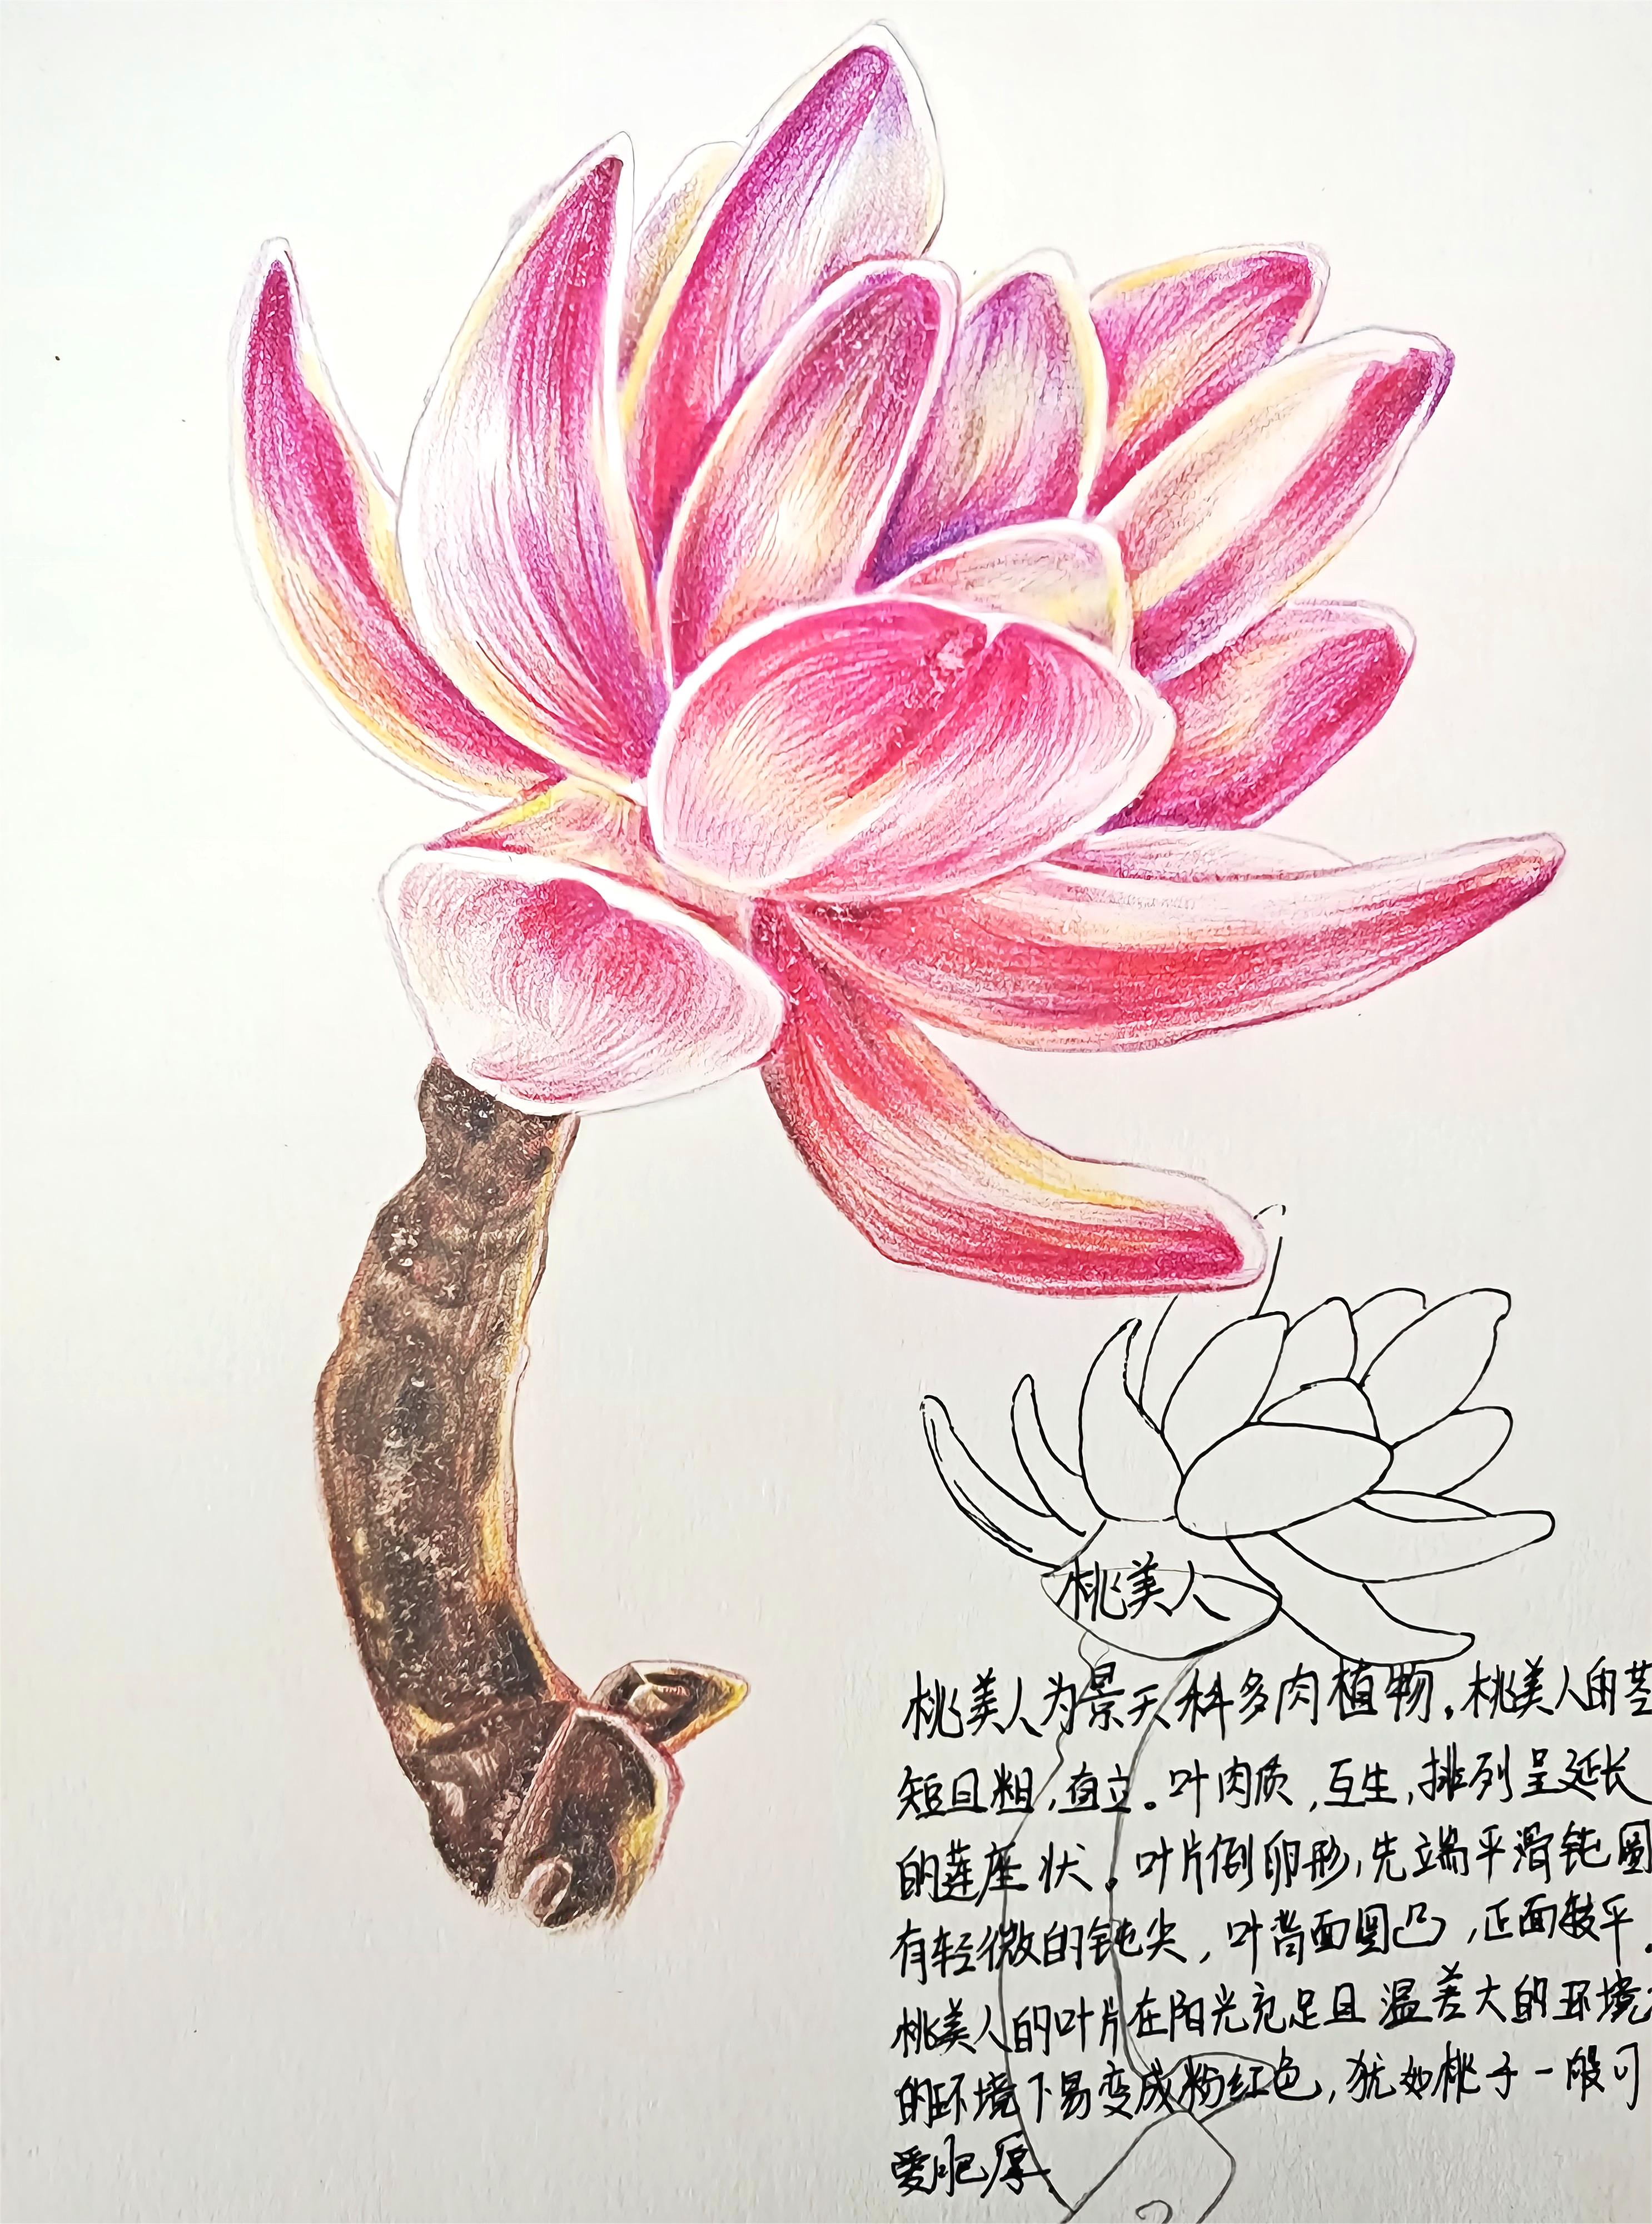 桃美人
桃美人为景天科多肉植物。桃美人的茎
短且粗，直立。叶肉质，互生，排列呈延长
的莲座状。叶片倒卵形，先端平滑钝圆
有轻微的钝尖，叶背面圆凸，正面较平。
桃美人的叶片在阳光充足且温差大的环境
的环境下易变成粉红色，犹如桃子一般可
爱肥厚